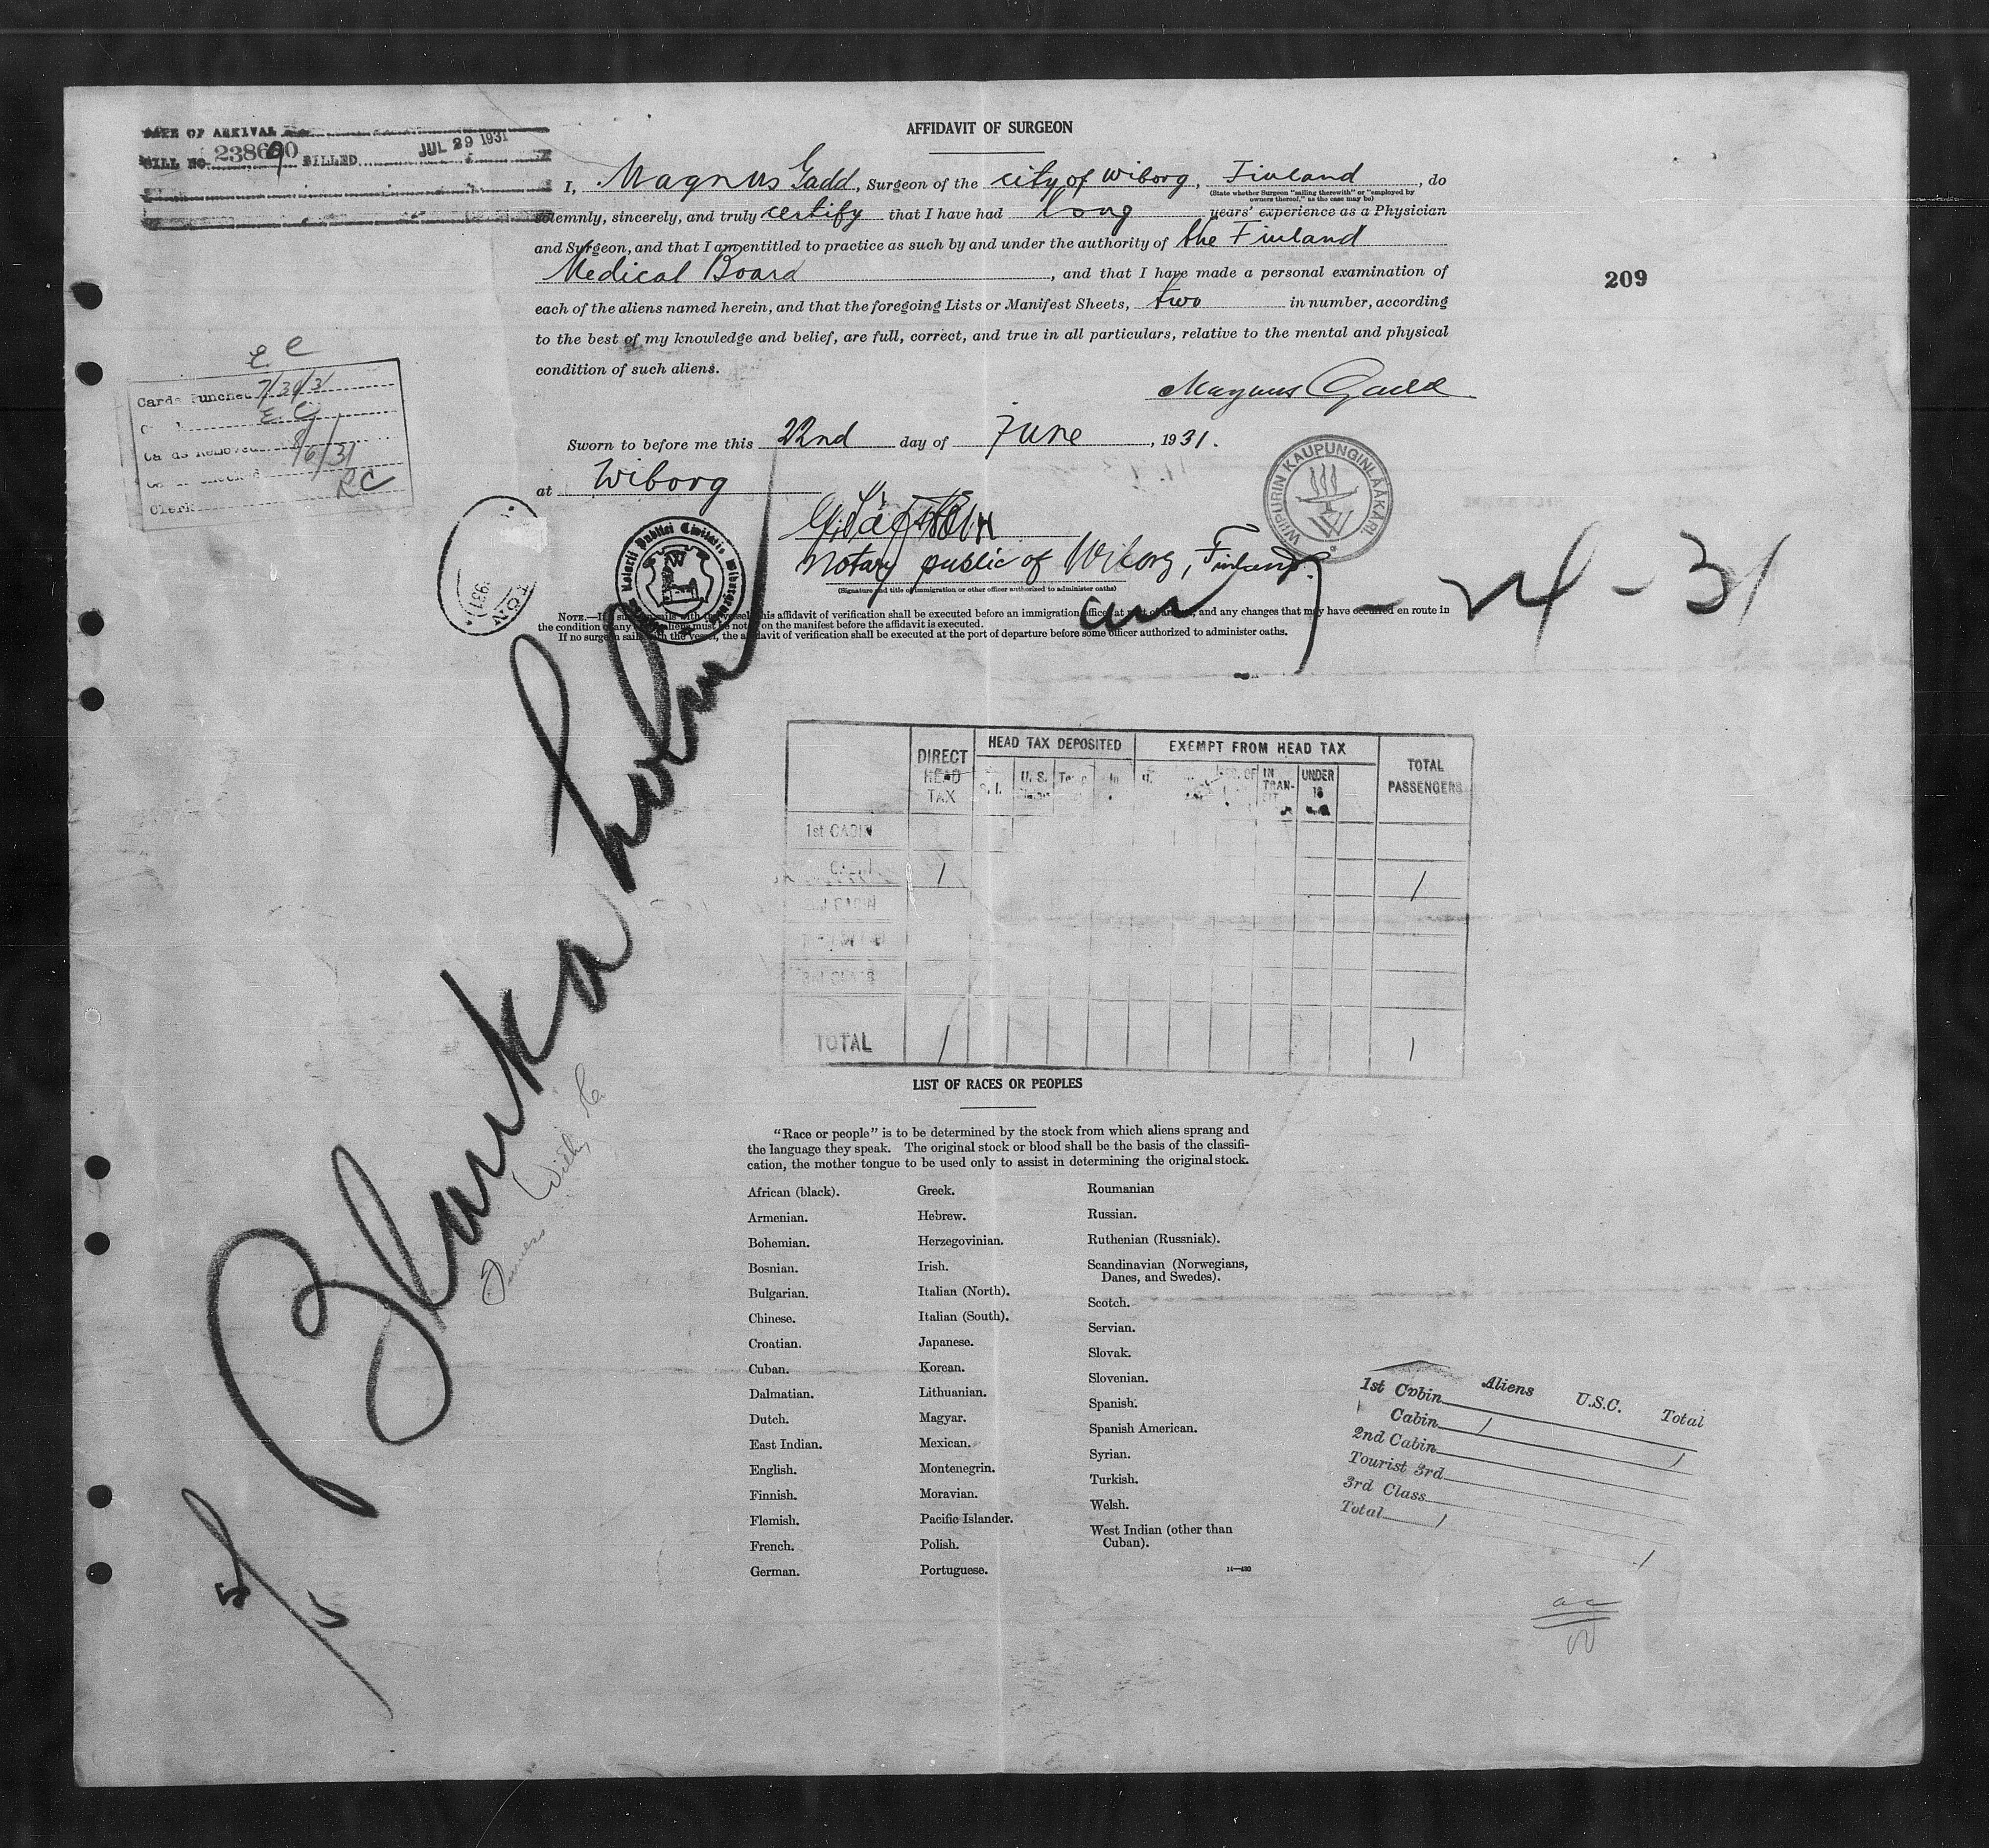 DATE OF ARRIVAL
BILL NO. 238690 BILLED JUL 29 1931
AFFIDAVIT OF SURGEON
I, Magnus Gadd, Surgeon of the city of Wiborg, Finland, do
(State whether Surgeon "sailing therewith" or "employed by
owners thereof," as the case may be)
solemnly, sincerely, and truly certify that I have had long years' experience as a Physician
and Surgeon, and that I am entitled to practice as such by and under the authority of the Finland
Medical Board, and that I have made a personal examination of
209
each of the aliens named herein, and that the foregoing Lists or Manifest Sheets, two in number, according
to the best of my knowledge and belief, are full, correct, and true in all particulars, relative to the mental and physical
condition of such aliens.
Magnus Gadd
E C
Cards Punched 7/30/31
E. C.
Cards Removed 8/6/31
RC
Clerk
Sworn to before me this 22nd day of June, 1931.
at Wiborg
WIIPURIN KAUPUNGINLÄÄKÄRI
Notary public of Wiborg, Finland.
(Signature and title of immigration or other officer authorized to administer oaths)
7-24-31
NOTE.—If a surgeon sails with the vessel, this affidavit of verification shall be executed before an immigration officer at port of arrival, and any changes that may have occurred en route in
the condition of any aliens must be noted on the manifest before the affidavit is executed.
If no surgeon sails with the vessel, the affidavit of verification shall be executed at the port of departure before some officer authorized to administer oaths.
Blankaholm
DIRECT HEAD TAX
HEAD TAX DEPOSITED
EXEMPT FROM HEAD TAX
TOTAL PASSENGERS
S. I. U. S. IN TRANSIT UNDER 16
1st CABIN
CABIN 1 1
2nd CABIN
3rd CLASS
TOTAL 1 1
Furness Withy
LIST OF RACES OR PEOPLES
"Race or people" is to be determined by the stock from which aliens sprang and
the language they speak. The original stock or blood shall be the basis of the classifi-
cation, the mother tongue to be used only to assist in determining the original stock.
African (black).
Armenian.
Bohemian.
Bosnian.
Bulgarian.
Chinese.
Croatian.
Cuban.
Dalmatian.
Dutch.
East Indian.
English.
Finnish.
Flemish.
French.
German.
Greek.
Hebrew.
Herzegovinian.
Irish.
Italian (North).
Italian (South).
Japanese.
Korean.
Lithuanian.
Magyar.
Mexican.
Montenegrin.
Moravian.
Pacific Islander.
Polish.
Portuguese.
Roumanian
Russian.
Ruthenian (Russniak).
Scandinavian (Norwegians,
Danes, and Swedes).
Scotch.
Servian.
Slovak.
Slovenian.
Spanish.
Spanish American.
Syrian.
Turkish.
Welsh.
West Indian (other than
Cuban).
14—430
Aliens U.S.C. Total
1st Cabin
Cabin 1 1
2nd Cabin
Tourist 3rd
3rd Class
Total 1 1